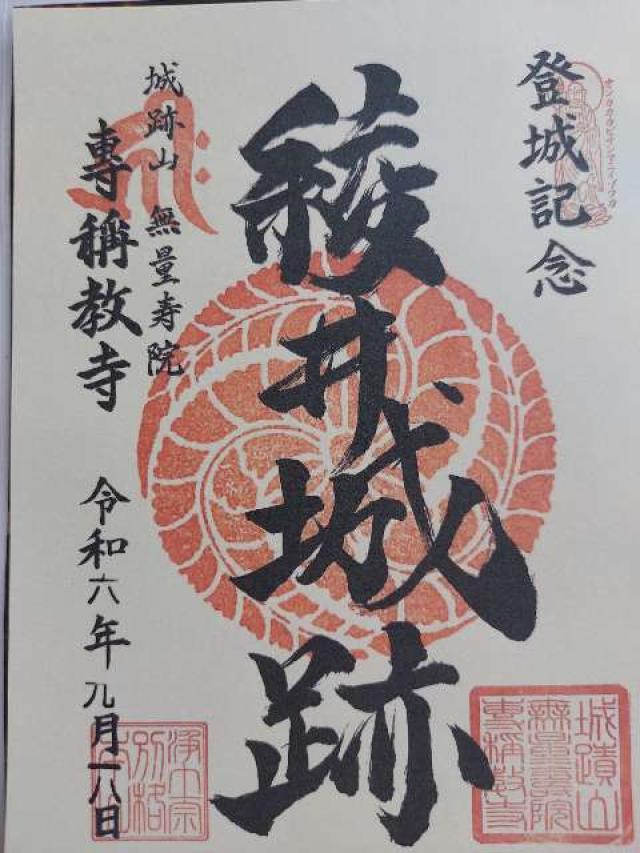 登城記念
オンカカカビサンマエイソワカ
綾井城跡
城跡山 無量寿院
專稱教寺
令和六年九月一八日
城蹟山
無量壽院
專稱教寺
浄土宗
別格